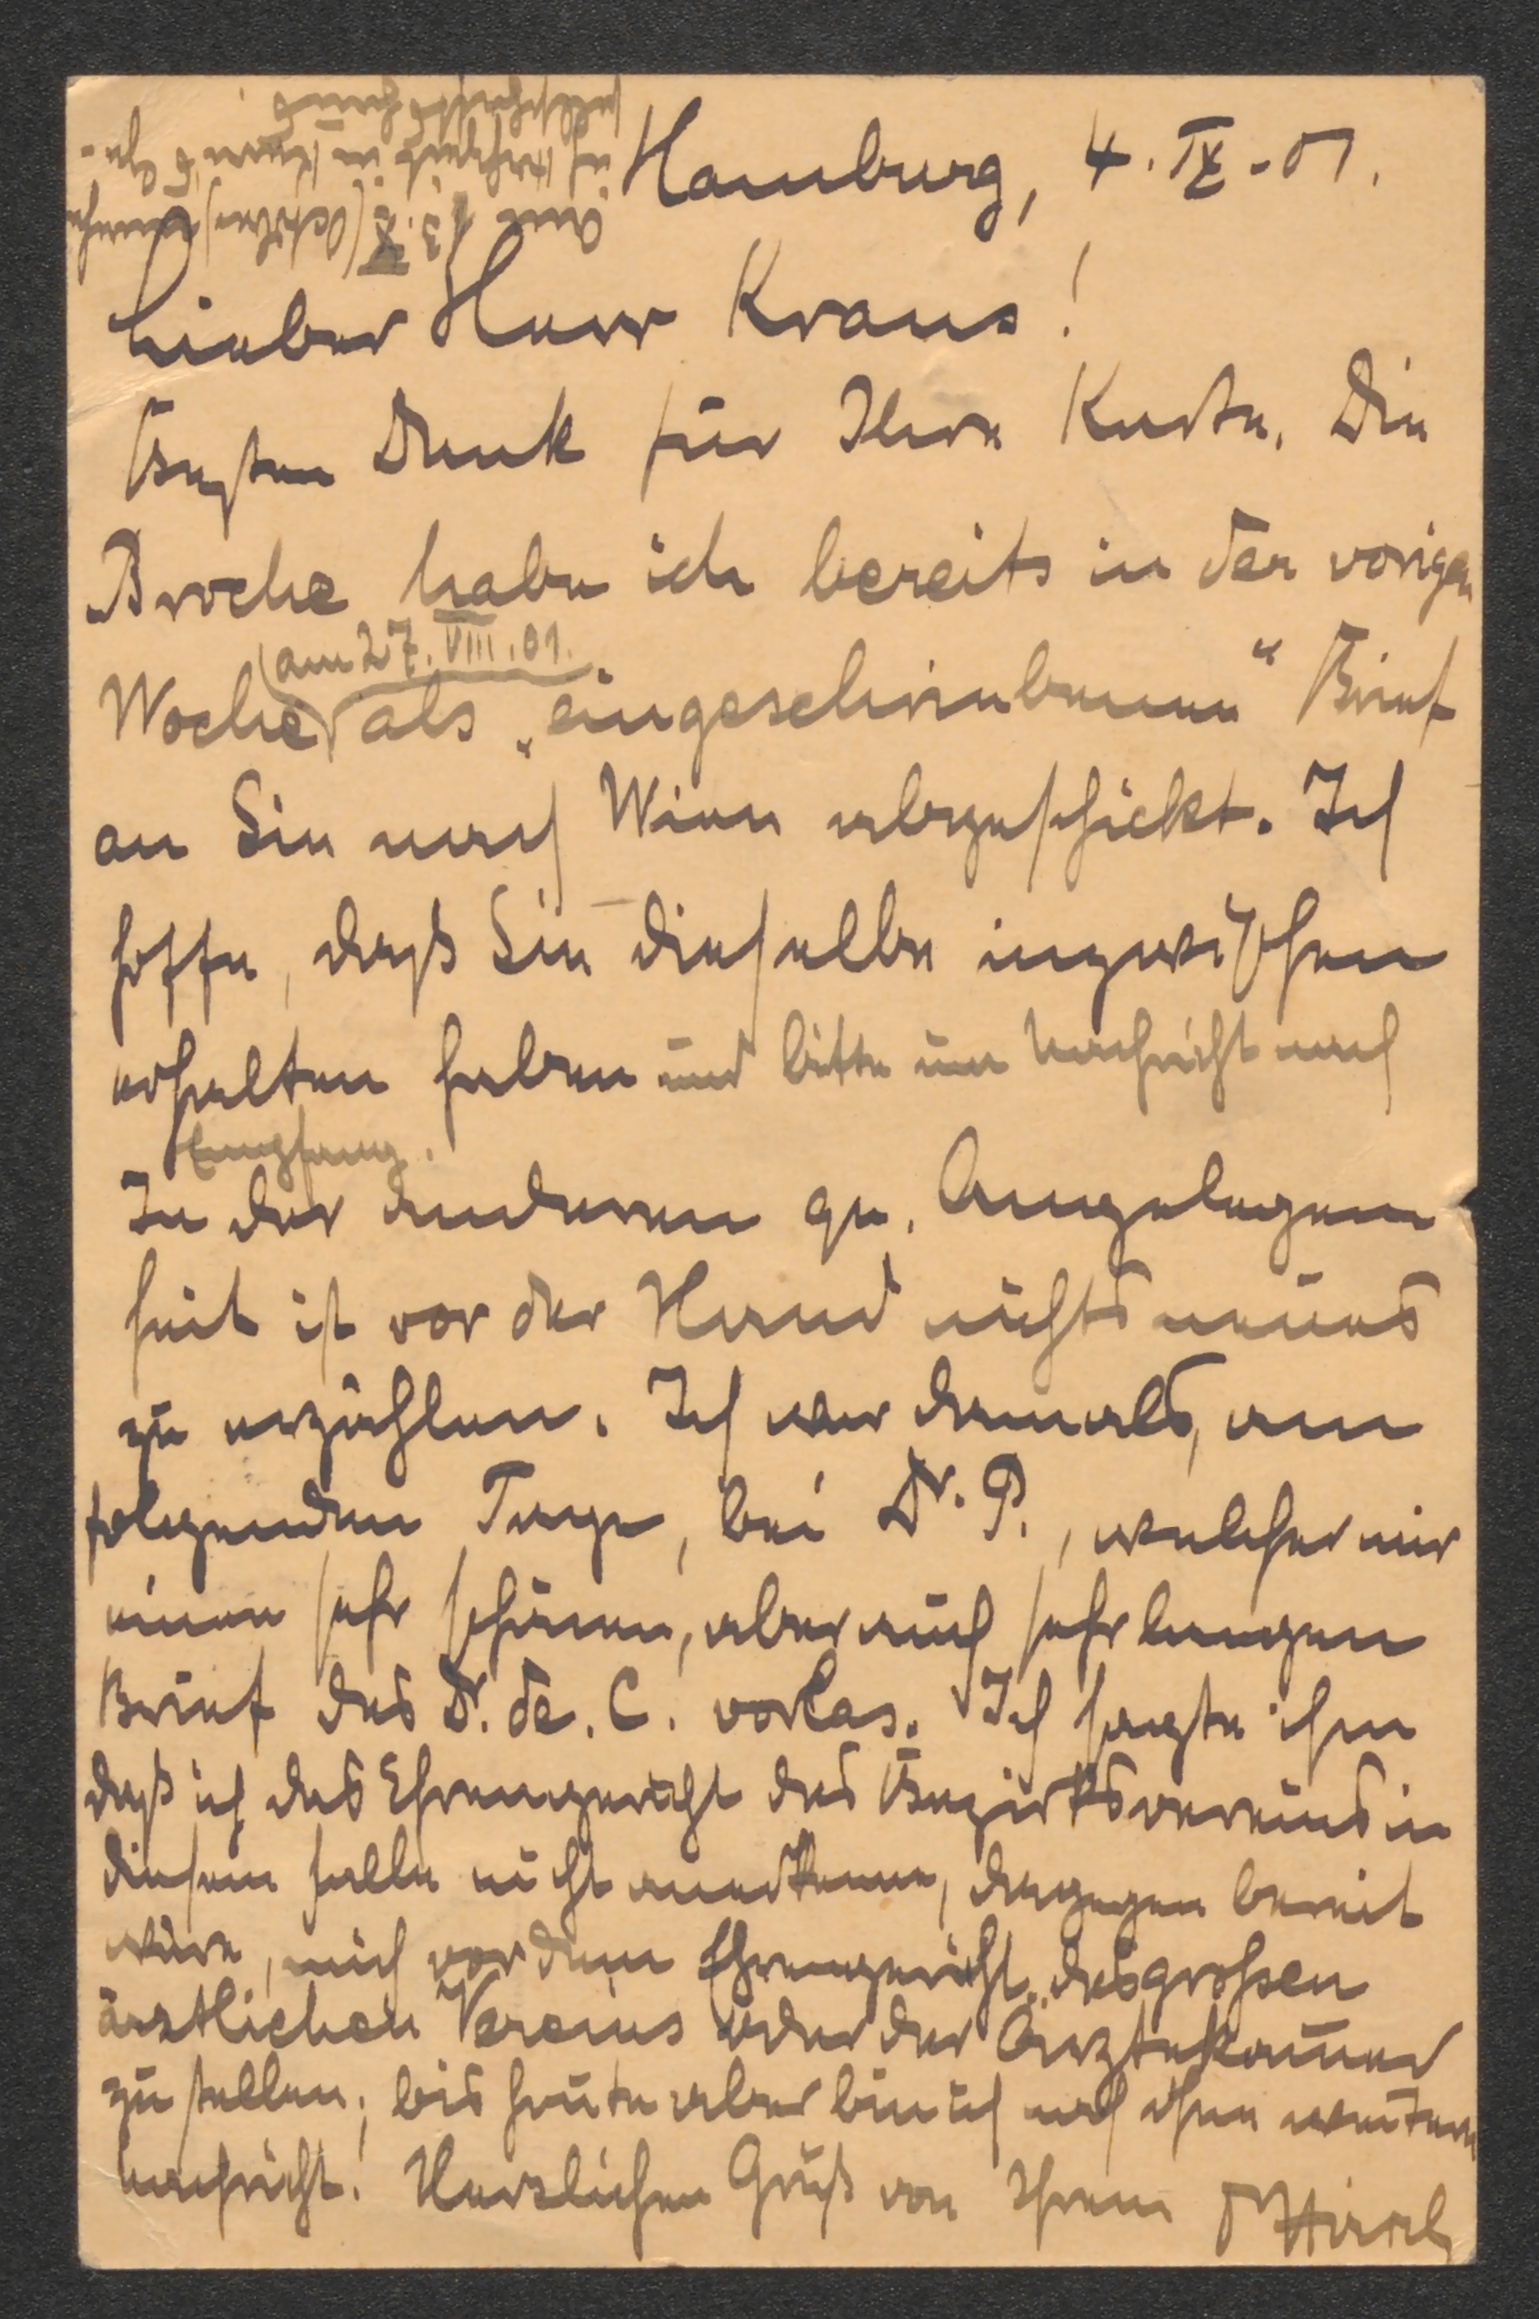 Hamburg, 4. IX. 01.
Lieber Herr Kraus!
Besten Dank für Ihre Karte. Die
Broche habe ich bereits in der vorigen
Woche (am 27. VIII. 01.) als „eingeschriebenen“ Brief
an Sie nach Wien abgeschickt. Ich
hoffe, daß Sie dieselbe inzwischen
erhalten haben und bitte um Nachricht nach
Empfang.
In der anderen qu. Angelegen
heit ist vor der Hand nichts neues
zu erzählen. Ich war damals, am
folgenden Tage, bei Dr. P., welcher mir
einen sehr schönen, aber auch sehr langen
Brief des Dr. de. C. vorlas. Ich sagte ihm
daß ich das Ehrengericht des Bezirksvereins in
diesem Falle nicht anerkenne, dagegen bereit
wäre, mich vor dem Ehrengericht des grossen
ärztlichen Vereins oder der Ärztekam̄er
zu stellen; bis heute aber bin ich noch ohne weitere
Nachricht. Herzlichen Gruß von Ihrem
Am 13. X (October)
ich Hochzeit in